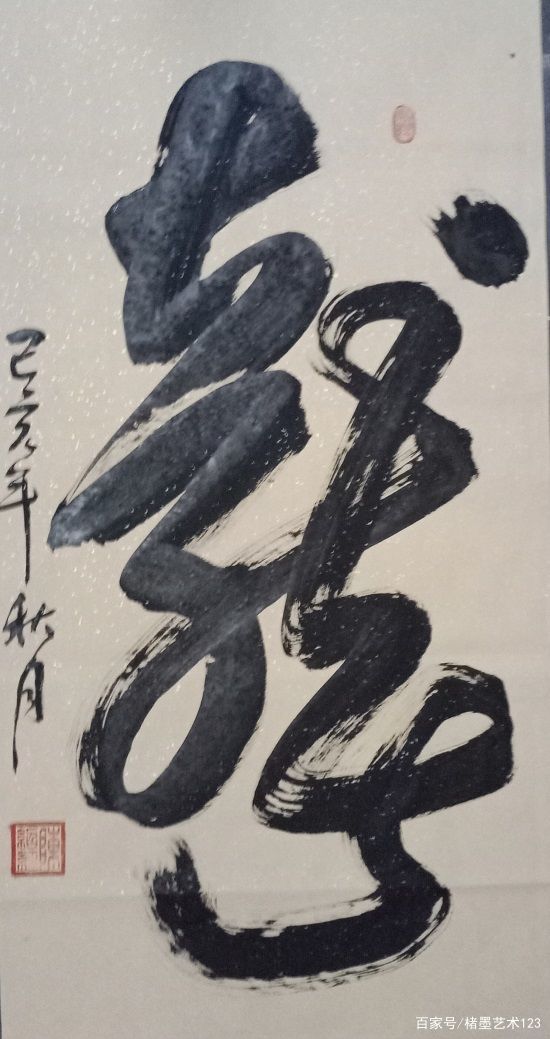 龍
己亥年秋月
百家号/楮墨艺术123